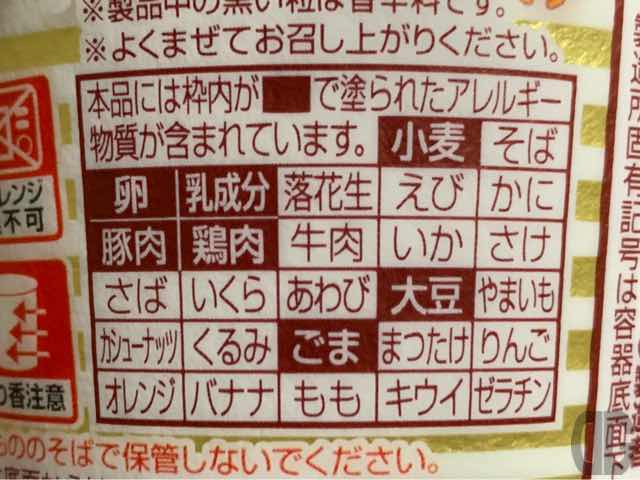 ※製品中の黒い粒は香辛料です。
※よくまぜてお召し上がりください。
本品には枠内が■で塗られたアレルギー
物質が含まれています。 小麦 そば
卵 乳成分 落花生 えび かに
豚肉 鶏肉 牛肉 いか さけ
さば いくら あわび 大豆 やまいも
カシューナッツ くるみ ごま まつたけ りんご
オレンジ バナナ もも キウイ ゼラチン
レンジ
不可
香注意
もののそばで保管しないでください。
製造所固有記号は容器底面下